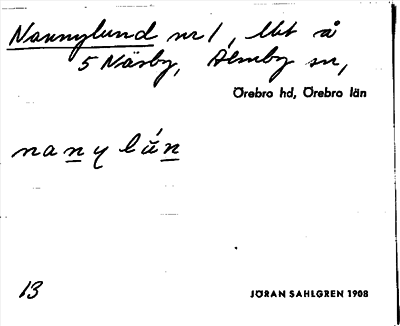 Nannylund nr 1, lht å
5 Näsby, Almby sn,
Örebro hd, Örebro län
nanylún
13
JÖRAN SAHLGREN 1908